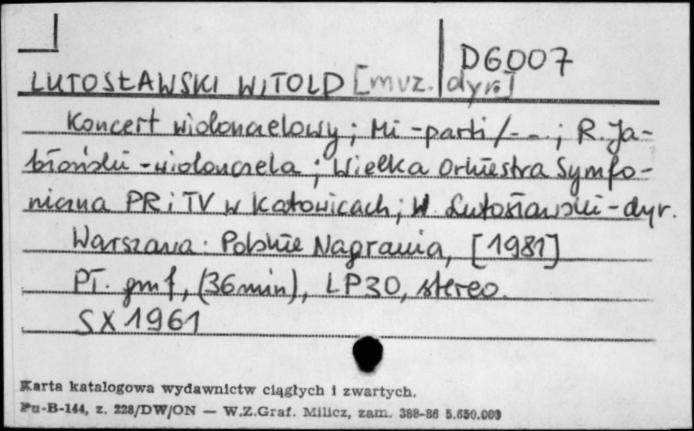 D6007
LUTOSŁAWSKI WITOLD [muz. dyr.]
Koncert wiolonczelowy; Mi-parti/--.; R. Ja-
błoński - wiolonczela; Wielka Orkiestra Symfo-
niczna PR i TV w Katowicach; W. Lutosławski - dyr.
Warszawa: Polskie Nagrania, [1981]
Pł. gmf, (36min), LP30, stereo.
SX1961
Karta katalogowa wydawnictw ciągłych i zwartych.
Pu-B-144, z. 228/DW/ON — W.Z.Graf. Milicz, zam. 388-86 5.650.000